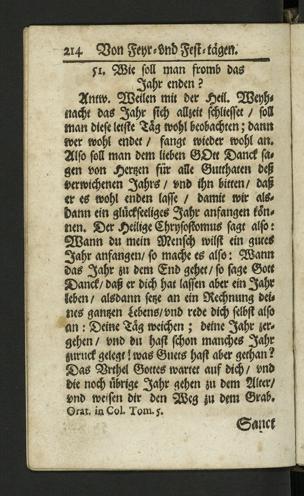 214 Von Feyr-vnd Fest-tägen.
51. Wie soll man fromb das
Jahr enden?
Antw. Weilen mit der Heil. Weyh-
nacht das Jahr sich allzeit schliesset / soll
man diese letste Täg wohl beobachten; dann
wer wohl endet / fangt wieder wohl an.
Also soll man dem lieben GOtt Danck sa-
gen von Hertzen für alle Gutthaten deß
verwichenen Jahrs / vnd ihn bitten / daß
er es wohl enden lasse / damit wir als-
dann ein glückseeliges Jahr anfangen kön-
nen. Der Heilige Chrysostomus sagt also:
Wann du mein Mensch wilst ein gutes
Jahr anfangen / so mache es also: Wann
das Jahr zu dem End gehet / so sage Gott
Danck / daß er dich hat lassen aber ein Jahr
leben / alsdann setze an ein Rechnung dei-
nes gantzen Lebens / vnd rede dich selbst also
an: Deine Täg weichen; deine Jahr zer-
gehen / vnd du hast schon manches Jahr
zuruck gelegt! was Guets hast aber gethan?
Das Vrthel Gottes wartet auf dich / vnd
die noch übrige Jahr gehen zu dem Alter /
vnd weisen dir den Weg zu dem Grab.
Orat. in Col. Tom. 5.
Sanct